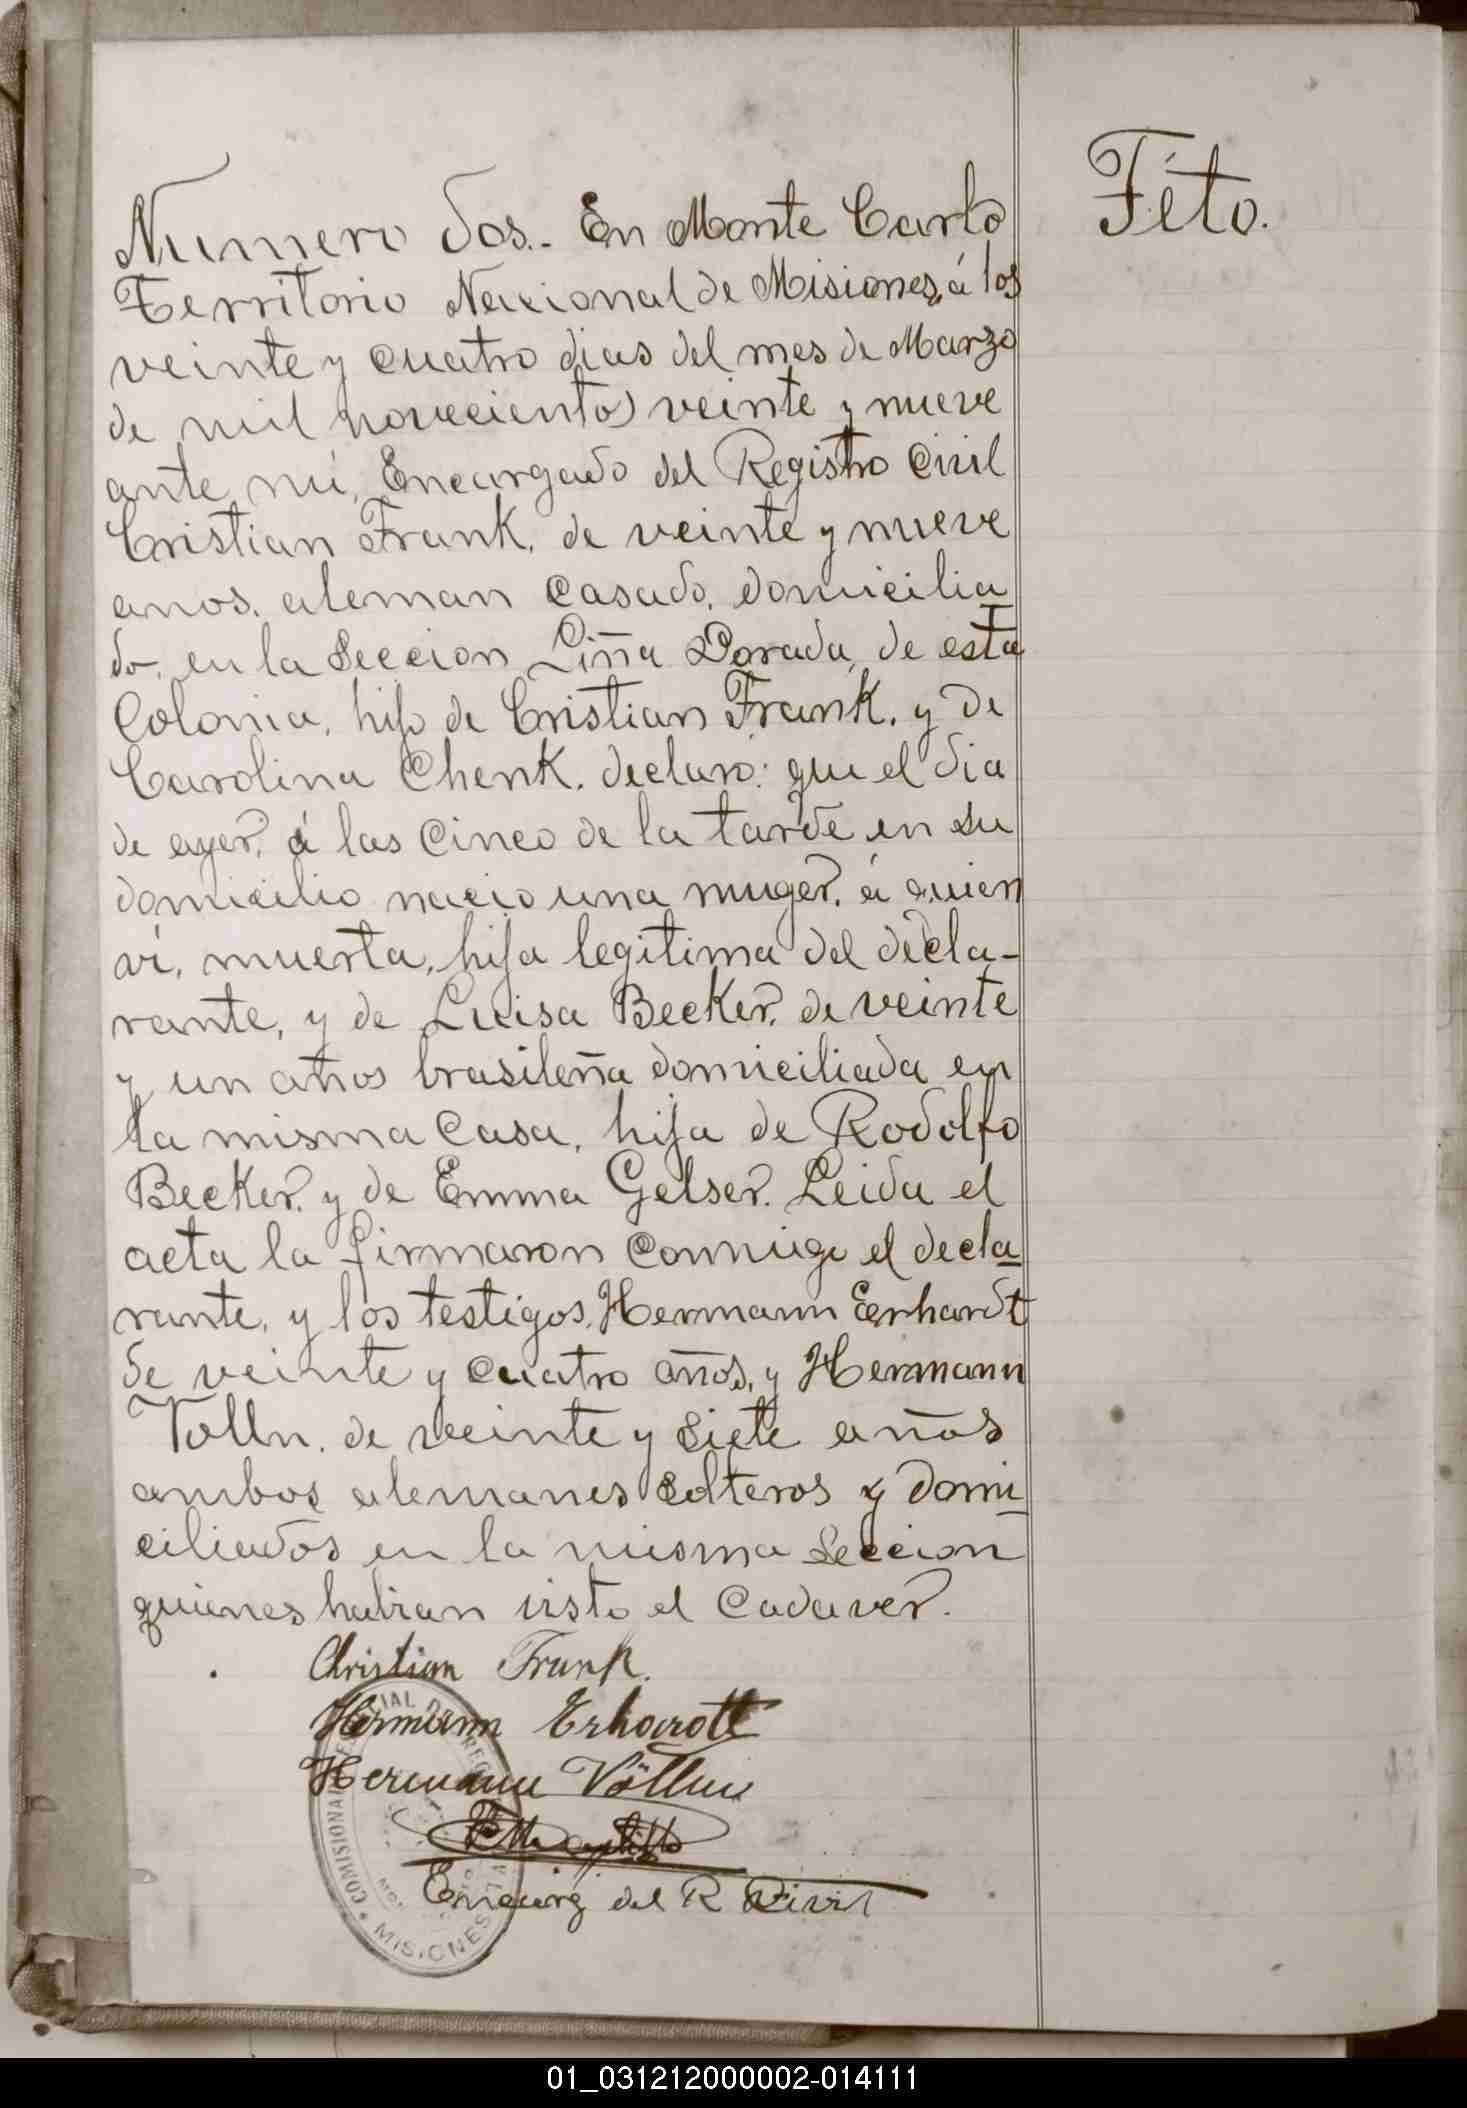 Féto.
Numero dos.- En Monte Carlo
Territorio Nacional de Misiones, á los
veinte y cuatro dias del mes de Marzo
de mil novecientos veinte y nueve
ante mi, Encargado del Registro Civil
Cristian Frank, de veinte y nueve
anos, aleman casado, domicilia
do, en la Seccion Liña Dorada, de esta
Colonia, hijo de Cristian Frank, y de
Carolina Chenk, declaro: que el dia
de ayer, á las cinco de la tarde en su
domicilio nacio una muger, á quien
vi, muerta, hija legitima del decla-
rante, y de Luisa Becker, de veinte
y un años brasileña domiciliada en
la misma casa, hija de Rodolfo
Becker, y de Emma Gelser. Leida el
acta la firmaron conmigo el decla
rante, y los testigos, Hermann Eerhardt
de veinte y cuatro años, y Hermann
Volln, de veinte y siete años
ambos alemanes solteros y domi
ciliados en la misma Seccion
quienes habian visto el Cadaver.
Christian Frank.
Hermann Erhardt
Hermann Völlm
Encarg del R Civil
COMISIONARIA
MISIONES
01_031212000002-014111